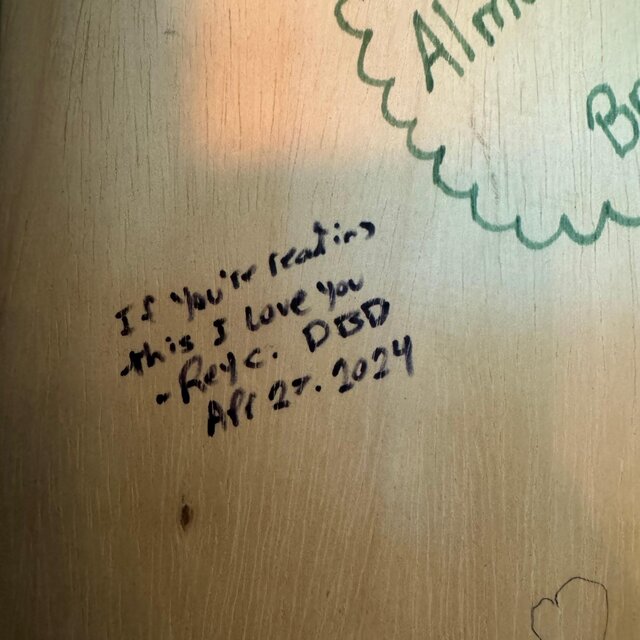 Alm
Br
If you're reading
this I love you
- Rey C. DBD
Apr 27. 2024